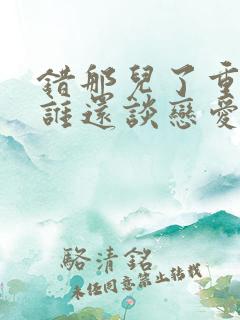 錯那兒了重
誰還談戀愛
駱清銘
未經同意禁止轉載